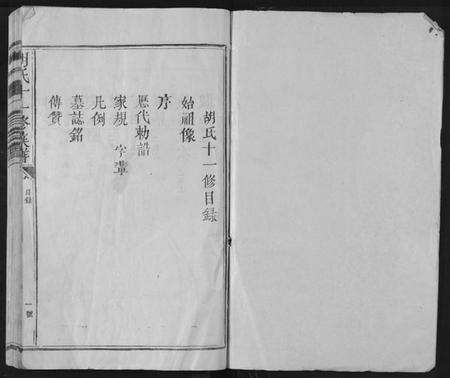 胡氏十一修目録
始祖像
序
歷代勅誥
家規 字輩
凡例
墓誌銘
傳贊
目錄
一號